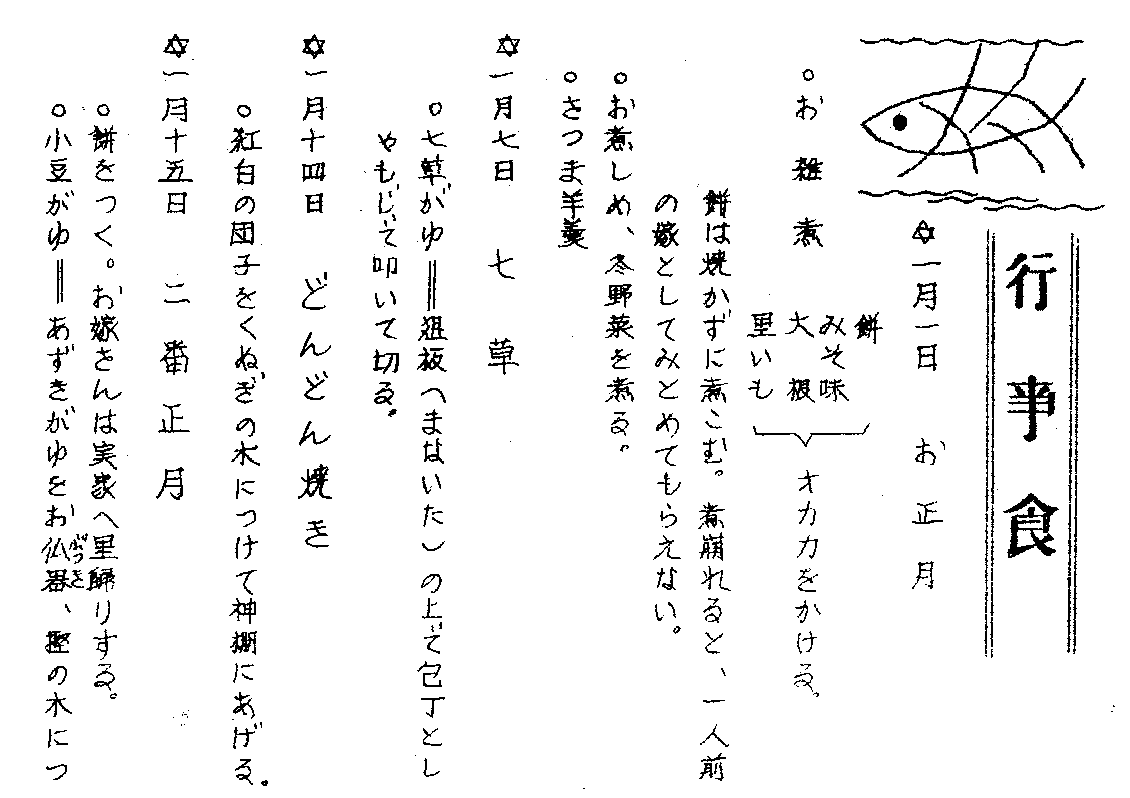 行事食
✡一月一日 お正月
○お雑煮
餅
みそ味
大根
里いも
オカカをかける。
餅は焼かずに煮こむ。煮崩れると、一人前
の嫁としてみとめてもらえない。
○お煮しめ、冬野菜を煮る。
○さつま羊羹
✡一月七日 七草
○七草がゆ＝俎板（まないた）の上で包丁とし
ゃもじで叩いて切る。
✡一月十四日 どんどん焼き
○紅白の団子をくぬぎの木につけて神棚にあげる。
✡一月十五日 二番正月
○餅をつく。お嫁さんは実家へ里帰りする。
○小豆がゆ＝あずきがゆをお仏器、の木につ
ぶっき